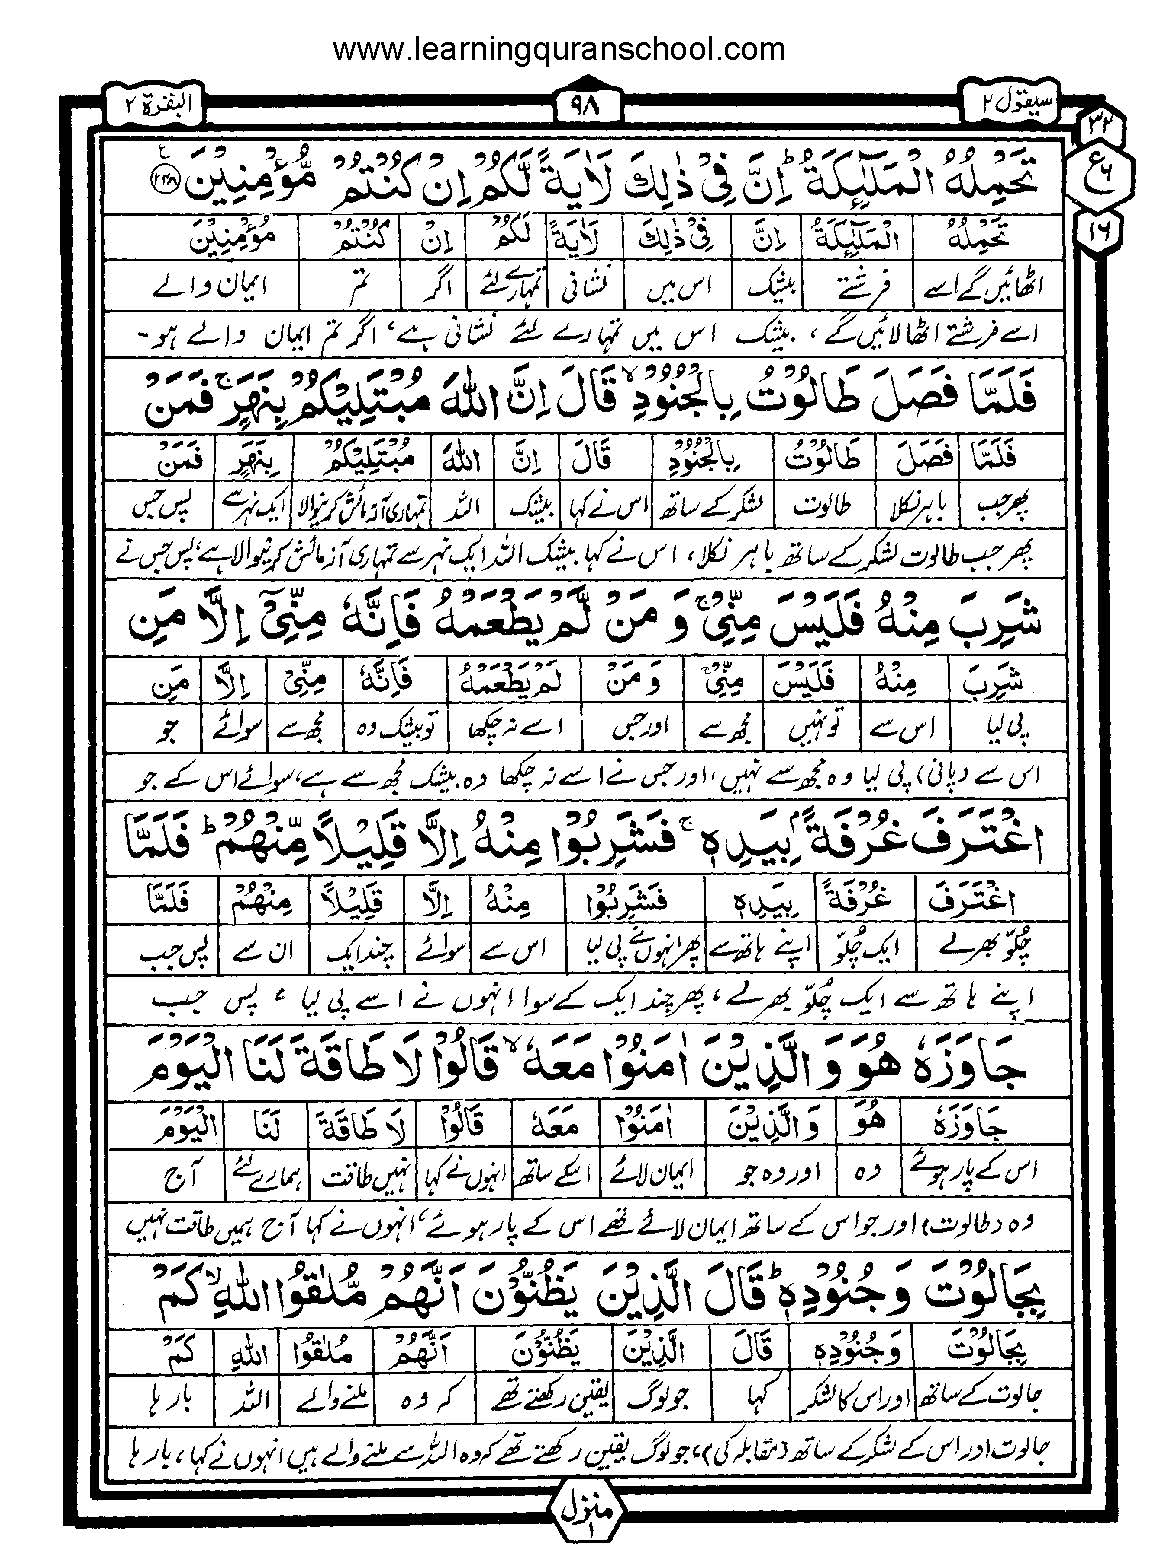 www.learningquranschool.com
سیقول ٢
٩٨
البقرة ٢
٣٢
ع ٦
١٦
تَحْمِلُهُ الْمَلٰٓئِكَةُ ؕ اِنَّ فِیْ ذٰلِكَ لَاٰیَةً لَّكُمْ اِنْ كُنْتُمْ مُّؤْمِنِیْنَ ﴿٢٤٨﴾ ع
تَحْمِلُهُ الْمَلٰٓئِكَةُ اِنَّ فِیْ ذٰلِكَ لَاٰیَةً لَكُمْ اِنْ كُنْتُمْ مُؤْمِنِیْنَ
اٹھائیں گے اسے فرشتے بیشک اس میں نشانی تمہارے لئے اگر تم ایمان والے
اسے فرشتے اٹھا لائیں گے، بیشک اس میں تمہارے لئے نشانی ہے، اگر تم ایمان والے ہو۔
فَلَمَّا فَصَلَ طَالُوْتُ بِالْجُنُوْدِ ۙ قَالَ اِنَّ اللّٰهَ مُبْتَلِیْكُمْ بِنَهَرٍ ۚ فَمَنْ
فَلَمَّا فَصَلَ طَالُوْتُ بِالْجُنُوْدِ قَالَ اِنَّ اللّٰهَ مُبْتَلِیْكُمْ بِنَهَرٍ فَمَنْ
پھر جب باہر نکلا طالوت لشکر کے ساتھ اس نے کہا بیشک اللہ تمہاری آزمائش کرنیوالا ایک نہر سے پس جس
پھر جب طالوت لشکر کے ساتھ باہر نکلا، اس نے کہا بیشک اللہ ایک نہر سے تمہاری آزمائش کرنیوالا ہے، پس جس نے
شَرِبَ مِنْهُ فَلَیْسَ مِنِّیْ ۚ وَ مَنْ لَّمْ یَطْعَمْهُ فَاِنَّهٗ مِنِّیْۤ اِلَّا مَنِ
شَرِبَ مِنْهُ فَلَیْسَ مِنِّیْ وَ مَنْ لَمْ یَطْعَمْهُ فَاِنَّهٗ مِنِّیْ اِلَّا مَنِ
پی لیا اس سے تو نہیں مجھ سے اور جس اسے نہ چکھا تو بیشک وہ مجھ سے سوائے جو
اس سے (پانی) پی لیا وہ مجھ سے نہیں، اور جس نے اسے نہ چکھا وہ بیشک مجھ سے ہے، سوائے اس کے جو
اغْتَرَفَ غُرْفَةًۢ بِیَدِهٖ ۚ فَشَرِبُوْا مِنْهُ اِلَّا قَلِیْلًا مِّنْهُمْ ؕ فَلَمَّا
اغْتَرَفَ غُرْفَةً بِیَدِهٖ فَشَرِبُوْا مِنْهُ اِلَّا قَلِیْلًا مِنْهُمْ فَلَمَّا
چُلّو بھرلے ایک چُلّو اپنے ہاتھ سے پھر انہوں نے پی لیا اس سے سوائے چند ایک ان سے پس جب
اپنے ہاتھ سے ایک چُلّو بھرلے، پھر چند ایک کے سوا انہوں نے اسے پی لیا، پس جب
جَاوَزَهٗ هُوَ وَ الَّذِیْنَ اٰمَنُوْا مَعَهٗ ۙ قَالُوْا لَا طَاقَةَ لَنَا الْیَوْمَ
جَاوَزَهٗ هُوَ وَ الَّذِیْنَ اٰمَنُوْا مَعَهٗ قَالُوْا لَا طَاقَةَ لَنَا الْیَوْمَ
اس کے پار ہوئے وہ اور وہ جو ایمان لائے اسکے ساتھ انہوں نے کہا نہیں طاقت ہمارے لئے آج
وہ (طالوت) اور جو اس کے ساتھ ایمان لائے تھے اس کے پار ہوئے، انہوں نے کہا آج ہمیں طاقت نہیں
بِجَالُوْتَ وَ جُنُوْدِهٖ ؕ قَالَ الَّذِیْنَ یَظُنُّوْنَ اَنَّهُمْ مُّلٰقُوا اللّٰهِ ۙ كَمْ
بِجَالُوْتَ وَ جُنُوْدِهٖ قَالَ الَّذِیْنَ یَظُنُّوْنَ اَنَّهُمْ مُلٰقُوا اللّٰهِ كَمْ
جالوت کے ساتھ اور اس کا لشکر کہا جو لوگ یقین رکھتے تھے کہ وہ ملنے والے اللہ بارہا
جالوت اور اس کے لشکر کے ساتھ (مقابلہ کی)، جو لوگ یقین رکھتے تھے کہ وہ اللہ سے ملنے والے ہیں انہوں نے کہا، بارہا
منزل ١